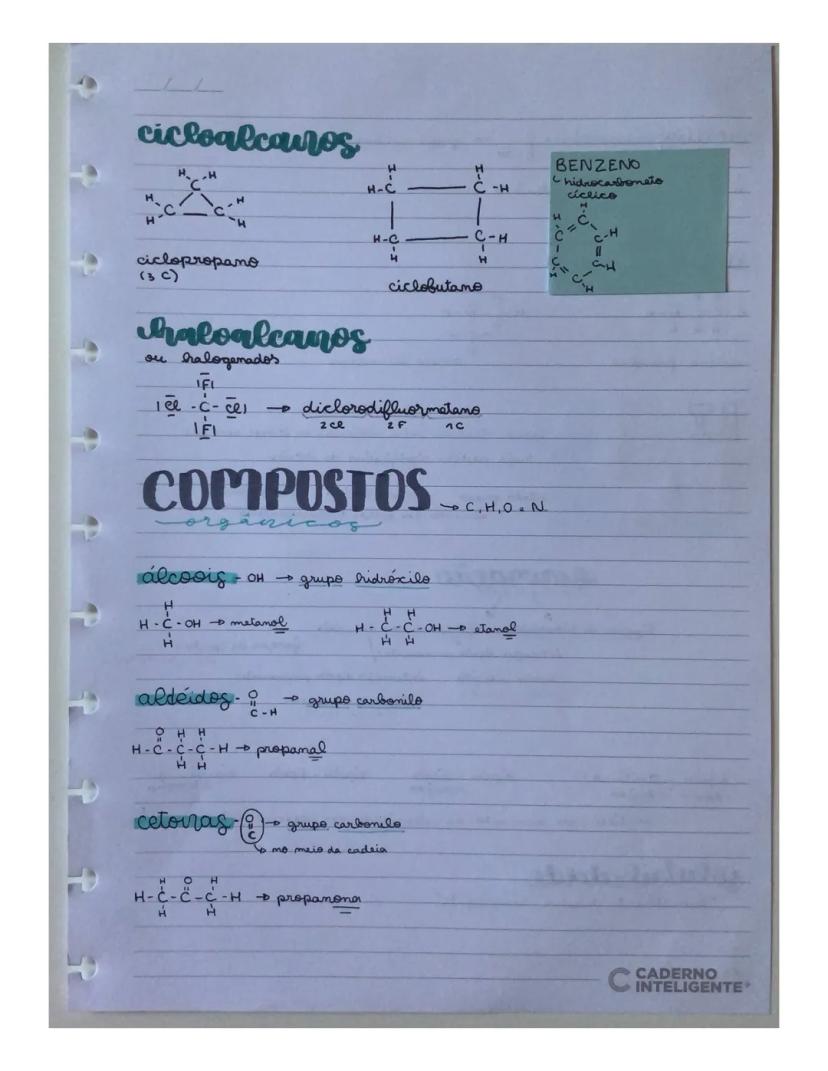 cicloalcanos
H H
C
H C — C H
H H
ciclopropano
(3 C)
H H
H-C — C-H
H-C — C-H
H H
ciclobutano
BENZENO
hidrocarboneto
cíclico
H
H C
C C-H
C C-H
H C
H
haloalcanos
ou halogenados
|F|
|Cl - C - Cl| → diclorodifluormetano
|F| 2Cl 2F 1C
COMPOSTOS → C, H, O e N
orgânicos
álcoois - OH → grupo hidróxilo
H
H - C - OH → metanol
H
H H
H - C - C - OH → etanol
H H
aldeídos - O → grupo carbonilo
C - H
O H H
H - C - C - C - H → propanal
H H
cetonas - O → grupo carbonilo
C
→ no meio da cadeia
H O H
H - C - C - C - H → propanona
H H
CADERNO
INTELIGENTE